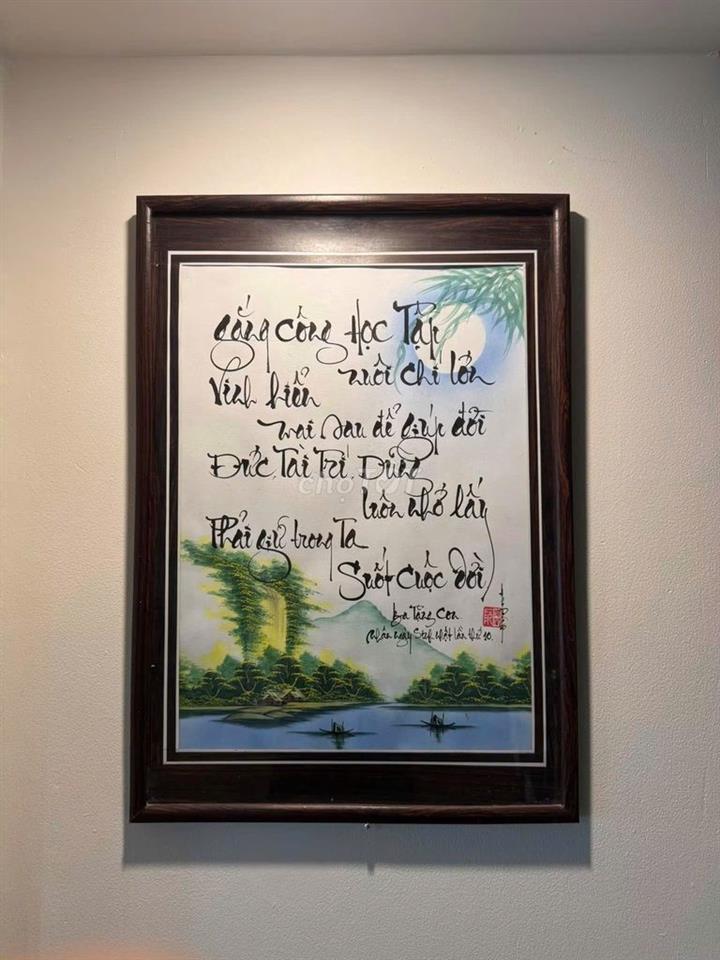 gắng công Học Tập
nuôi chí lớn
Vinh hiển
mai sau để giúp đời
Đức, Tài Trí, Dũng
luôn nhớ lấy
Phải giữ trong Ta
Suốt cuộc đời
Ba Tặng Con
Nhân ngày Sinh nhật lần thứ 10.
chợTỐT